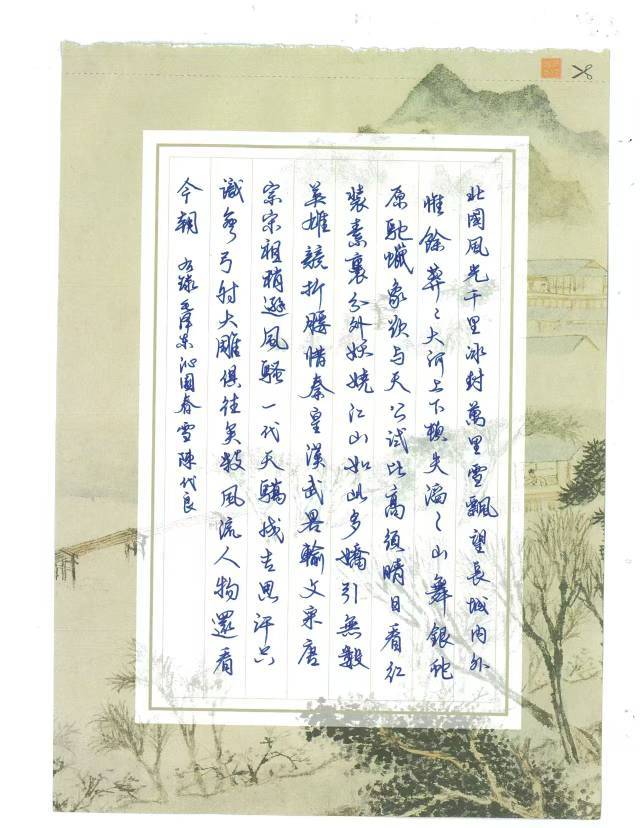 北國風光千里冰封萬里雪飄望長城内外
惟餘莽〻大河上下頓失滔〻山舞銀蛇
原馳蠟象欲与天公試比高須晴日看红
装素裹分外妖娆江山如此多嬌引無數
英雄競折腰惜秦皇漢武畧輸文采唐
宗宋祖稍遜風騷一代天驕成吉思汗只
識彎弓射大雕俱往矣数風流人物還看
今朝 右録毛澤东沁園春雪陳代良